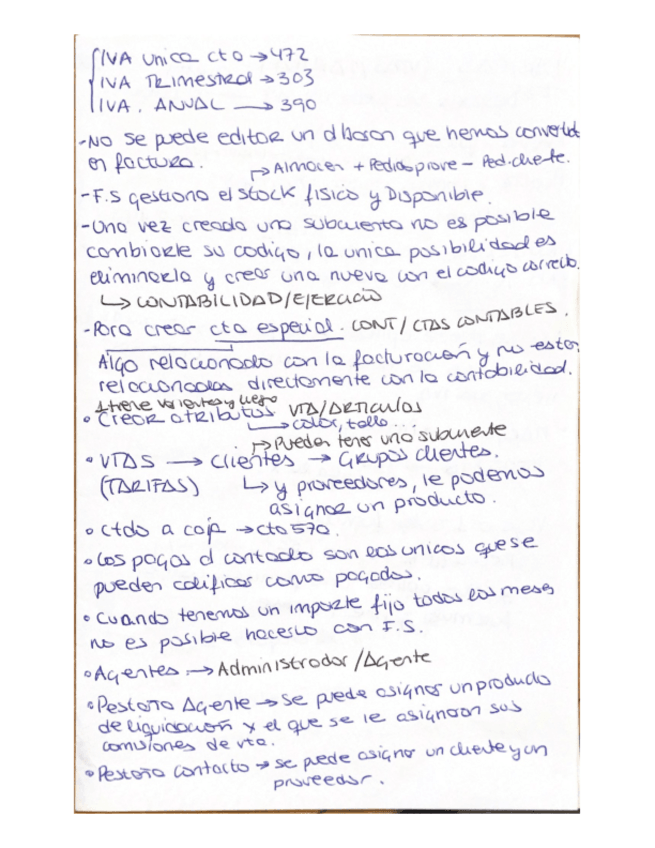 IVA unica cta → 472
IVA TRimestral → 303
IVA. ANUAL → 390
- No se puede editar un albaran que hemos convertido
en factura.
↱ Almacen + Pedidos prove - Ped. cliente.
- F.S gestiona el stock fisico y Disponible.
- Una vez creada una subcuenta no es posible
cambiarle su codigo, la unica posibilidad es
eliminarla y crear una nueva con el codigo correcto.
↳ CONTABILIDAD/EJERCICIO
- Para crear cta especial. CONT/CTAS CONTABLES.
Algo relacionado con la facturación y no estan
relacionadas directamente con la contabilidad.
1º tiene variantes y luego
• Crear atributos VTA/ARTICULOS
↳ color, talla...
↱ Pueden tener una subcuenta
• VTAS → clientes → Grupos clientes.
(TARIFAS) ↳ y proveedores, le podemos
asignar un producto.
• ctdo a caja → cta 570.
• Los pagos al contado son los unicos que se
pueden calificar como pagados.
• Cuando tenemos un importe fijo todos los meses
no es posible hacerlo con F.S.
• Agentes → Administrador/Agente
• Pestaña Agente → se puede asignar un producto
de liquidación y el que se le asignaran sus
comisiones de vta.
• Pestaña contacto → se puede asignar un cliente y un
proveedor.